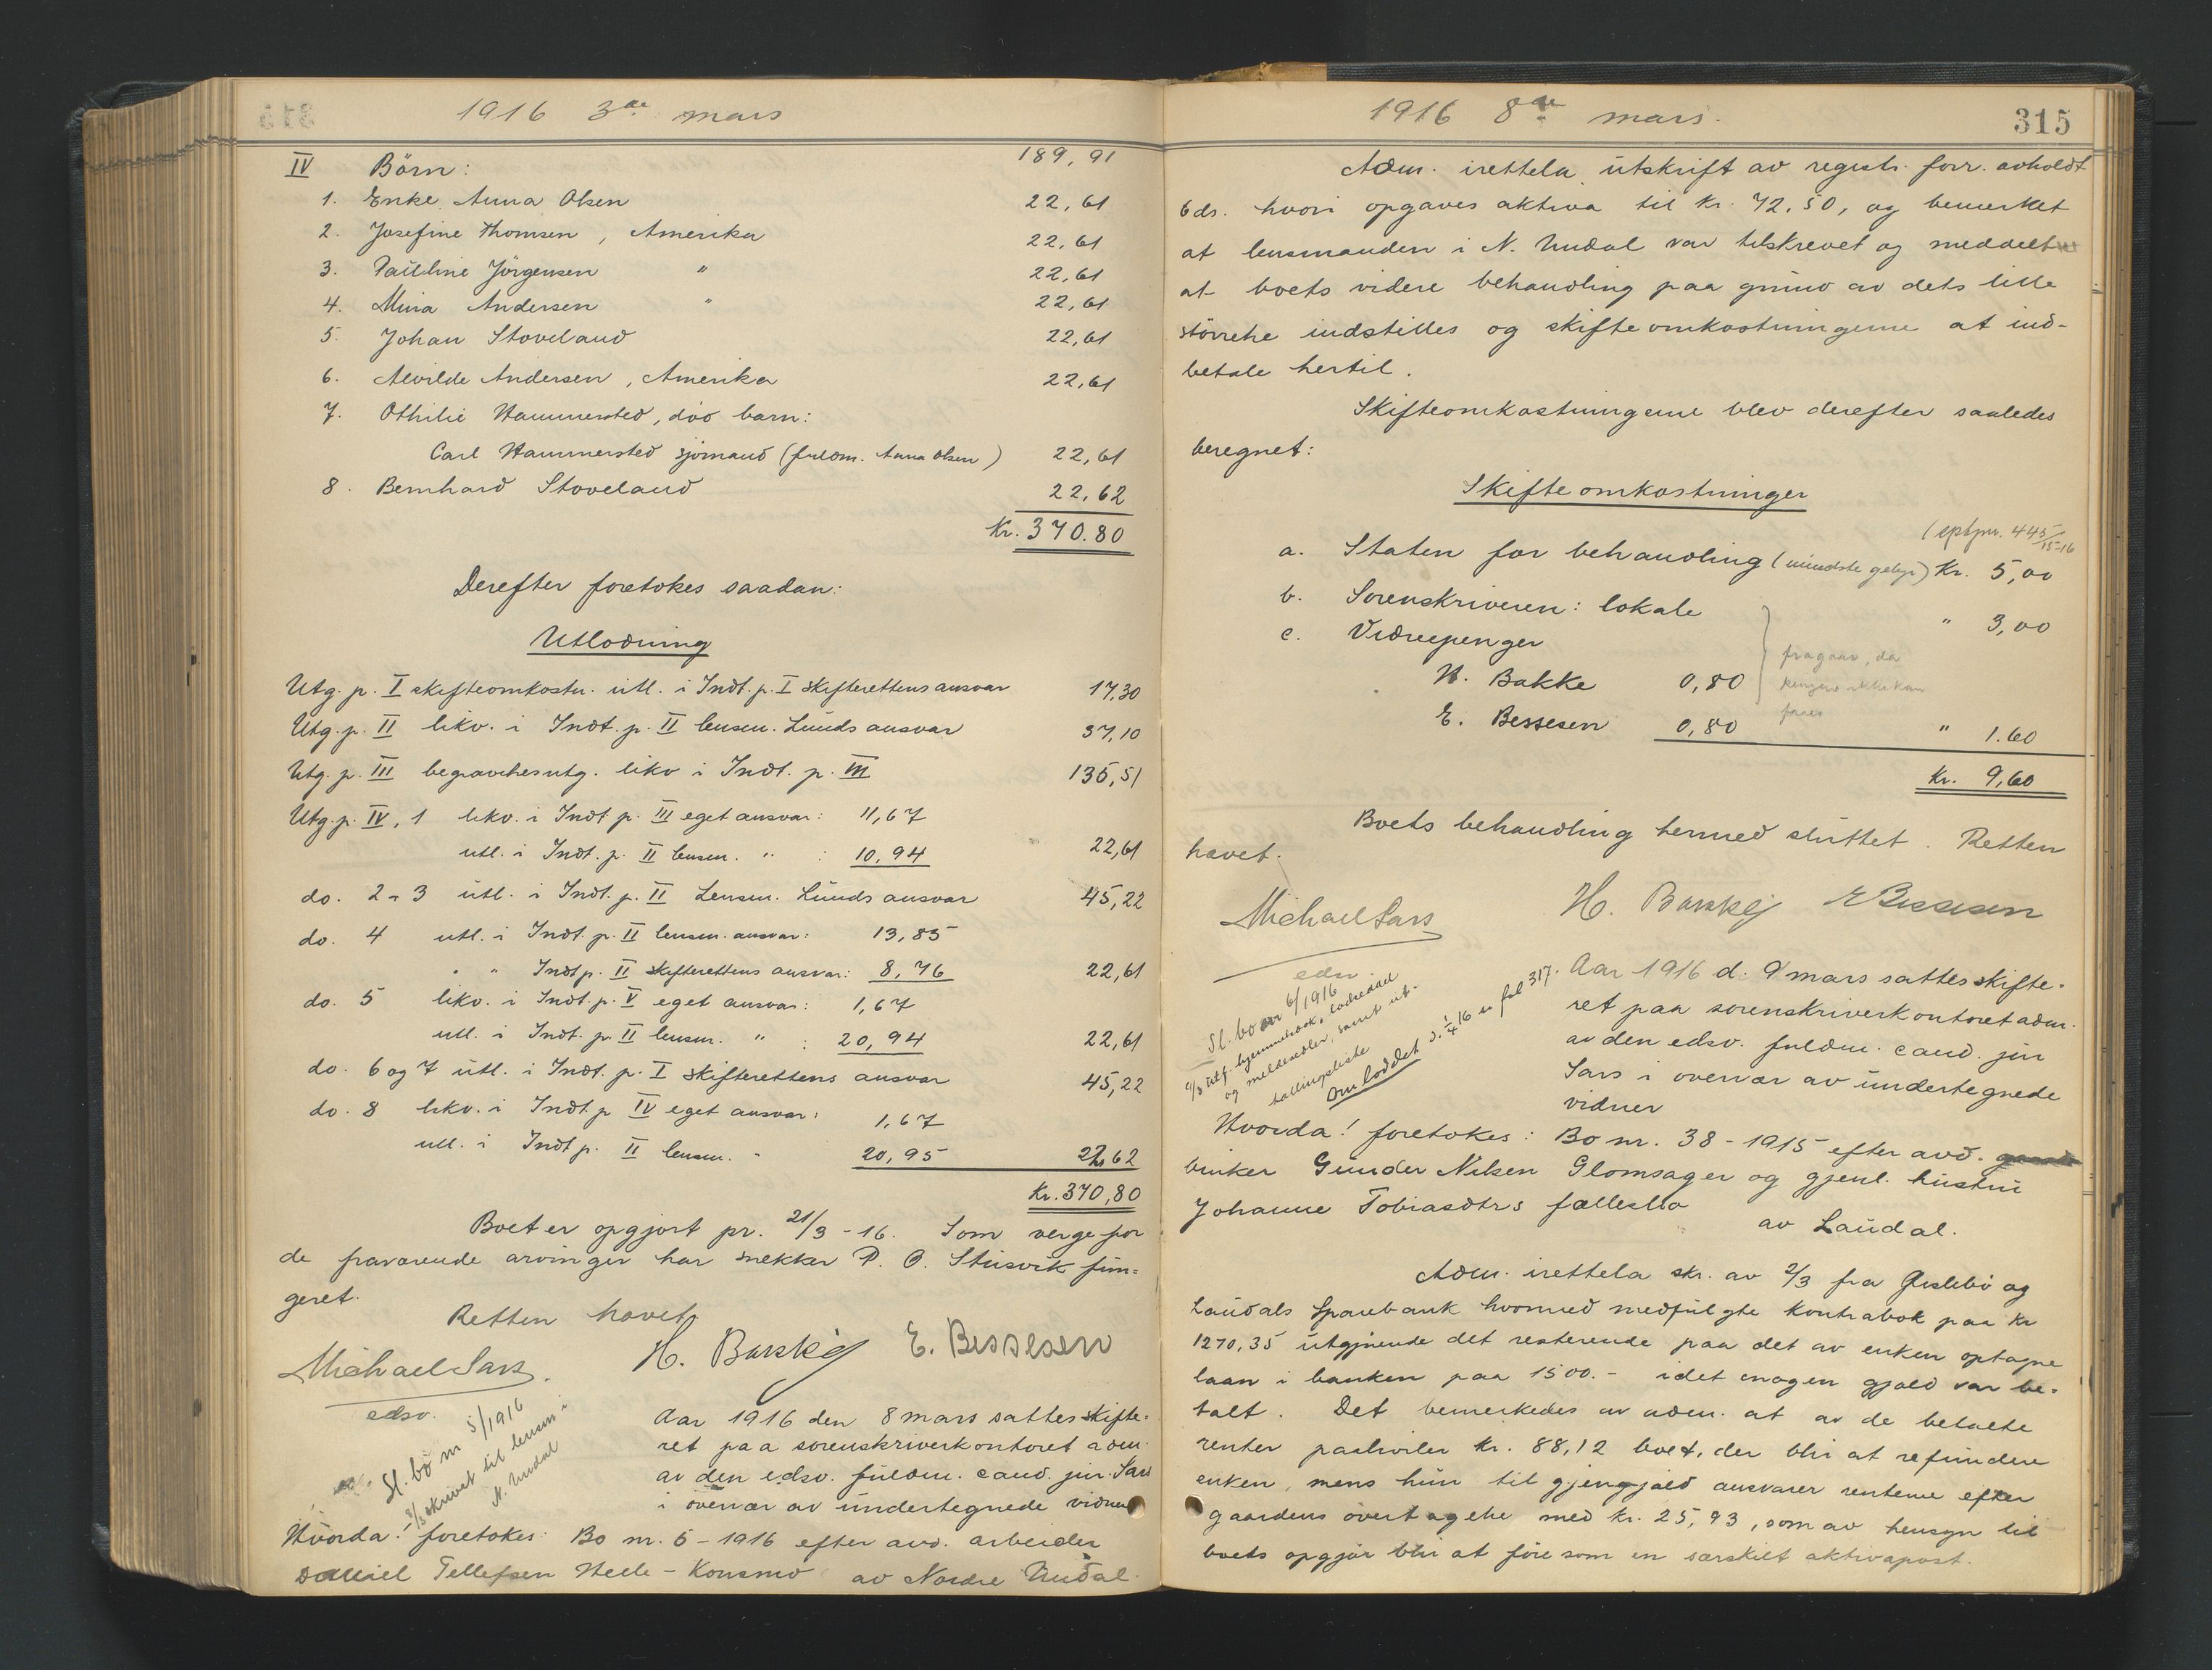 1916 3de mars
189,91
IV Börn:
1. Enke Anna Olsen 22,61
2. Josefine Thomsen, Amerika 22,61
3. Pauline Jörgensen " 22,61
4. Mina Andersen " 22,61
5. Johan Stoveland 22,61
6. Alvilde Andersen, Amerika 22,61
7. Othilie Hammersted, död barn:
Carl Hammersted sjömand (fuldm. Anna Olsen) 22,61
8. Bernhard Stoveland 22,62
Kr. 370.80
Derefter foretokes saadan:
Utlodning
Utg. p. I skifteomkostn. utl. i Indt. p. I skifterettens ansvar 17,30
Utg. p. II likv. i Indt. p. II lensm. Lunds ansvar 37,10
Utg. p. III begravelsesutg. likv i Indt. p. III 135,51
Utg. p. IV, 1 likv. i Indt. p. III eget ansvar: 11,67
utl. i Indt. p. II lensm. " : 10,94 22,61
do. 2 - 3 utl. i Indt. p. II Lensm. Lunds ansvar 45,22
do. 4 utl. i Indt. p. II lensm. ansvar: 13,85
" " Indt p. II skifterettens ansvar: 8,76 22,61
do. 5 likv. i Indt. p. V eget ansvar: 1,67
utl. i Indt. p. II lensm. " : 20,94 22,61
do. 6 og 7 utl. i Indt. p. I skifterettens ansvar 45,22
do. 8 likv. i Indt. p IV eget ansvar: 1,67
utl. i Indt p. II lensm. " 20,95 22,62
Kr. 370,80
Boet er opgjort pr. 21/3 - 16. Som verge for
de fraværende arvinger har snekker P. O. Stusvik fun-
geret.
Retten hævet
Michael Sars. H. Barskej E. Bessesen
edsv.
Sl. bo nr 5/1916
8/3 skrivet til lensm i
N. Undal
Aar 1916 den 8 mars sattes skifte-
ret paa sorenskriverkontoret adm.
av den edsv. fuldm. cand. jur. Sars
i overvær av undertegnede vidner
Hvorda! foretokes: Bo nr. 5 - 1916 efter avd. arbeider
Daniel Tellefsen Helle - Konsmo av Nordre Undal.
1916 8de mars.
315
Adm. irettela utskrift av registr. forr. avholdt
6 ds. hvori opgaves aktiva til Kr. 72,50, og bemerket
at lensmanden i N. Undal var tilskrevet og meddelt
at boets videre behandling paa grund av dets lille
störrelse indstilles og skifteomkostningerne at ind-
betale hertil.
Skifteomkostningerne blev derefter saaledes
beregnet:
Skifteomkostninger
a. Staten for behandling (mindste gebyr) Kr. 5,00
b. Sorenskriveren: lokale " 3,00
c. Vidnepenger
H. Bakke 0,80
fragaar, da
penger ikke kan
faaes
E. Bessesen 0,80 " 1.60
Kr. 9,60
Boets behandling hermed sluttet. Retten
hævet.
Michael Sars H. Barskej E Bessesen
edsv.
Sl. bo nr 6/1916
og meldesedler, samt ut-
tallingsliste
Omloddet d. 1/4 16 se fol 317.
Aar 1916 d. 9 mars sattes skifte-
ret paa sorenskriverkontoret adm.
av den edsv. fuldm. cand. jur
Sars i overvær av undertegnede
vidner
Hvorda! foretokes: Bo nr. 38 - 1915 efter avd.
bruker Gunder Nilsen Glomsager og gjenl. hustru
Johanne Tobiasdtrs fællesbo
av Laudal.
Adm. irettela skr. av 2/3 fra Öislebö og
Laudals Sparebank hvormed medfulgte Kontrabok paa Kr
1270,35 utgjörende det resterende paa det av enken optagne
laan i banken paa 1500.- idet megen gjæld var be-
talt. Det bemerkedes av adm. at av de betalte
renter paahviler Kr. 88,12 boet, der blir at refundere
enken, mens hun til gjengjæld ansvarer renterne efter
gaardens overtagelse med kr. 25,93, som av hensyn til
boets opgjör blir at före som en særskilt aktivapost.